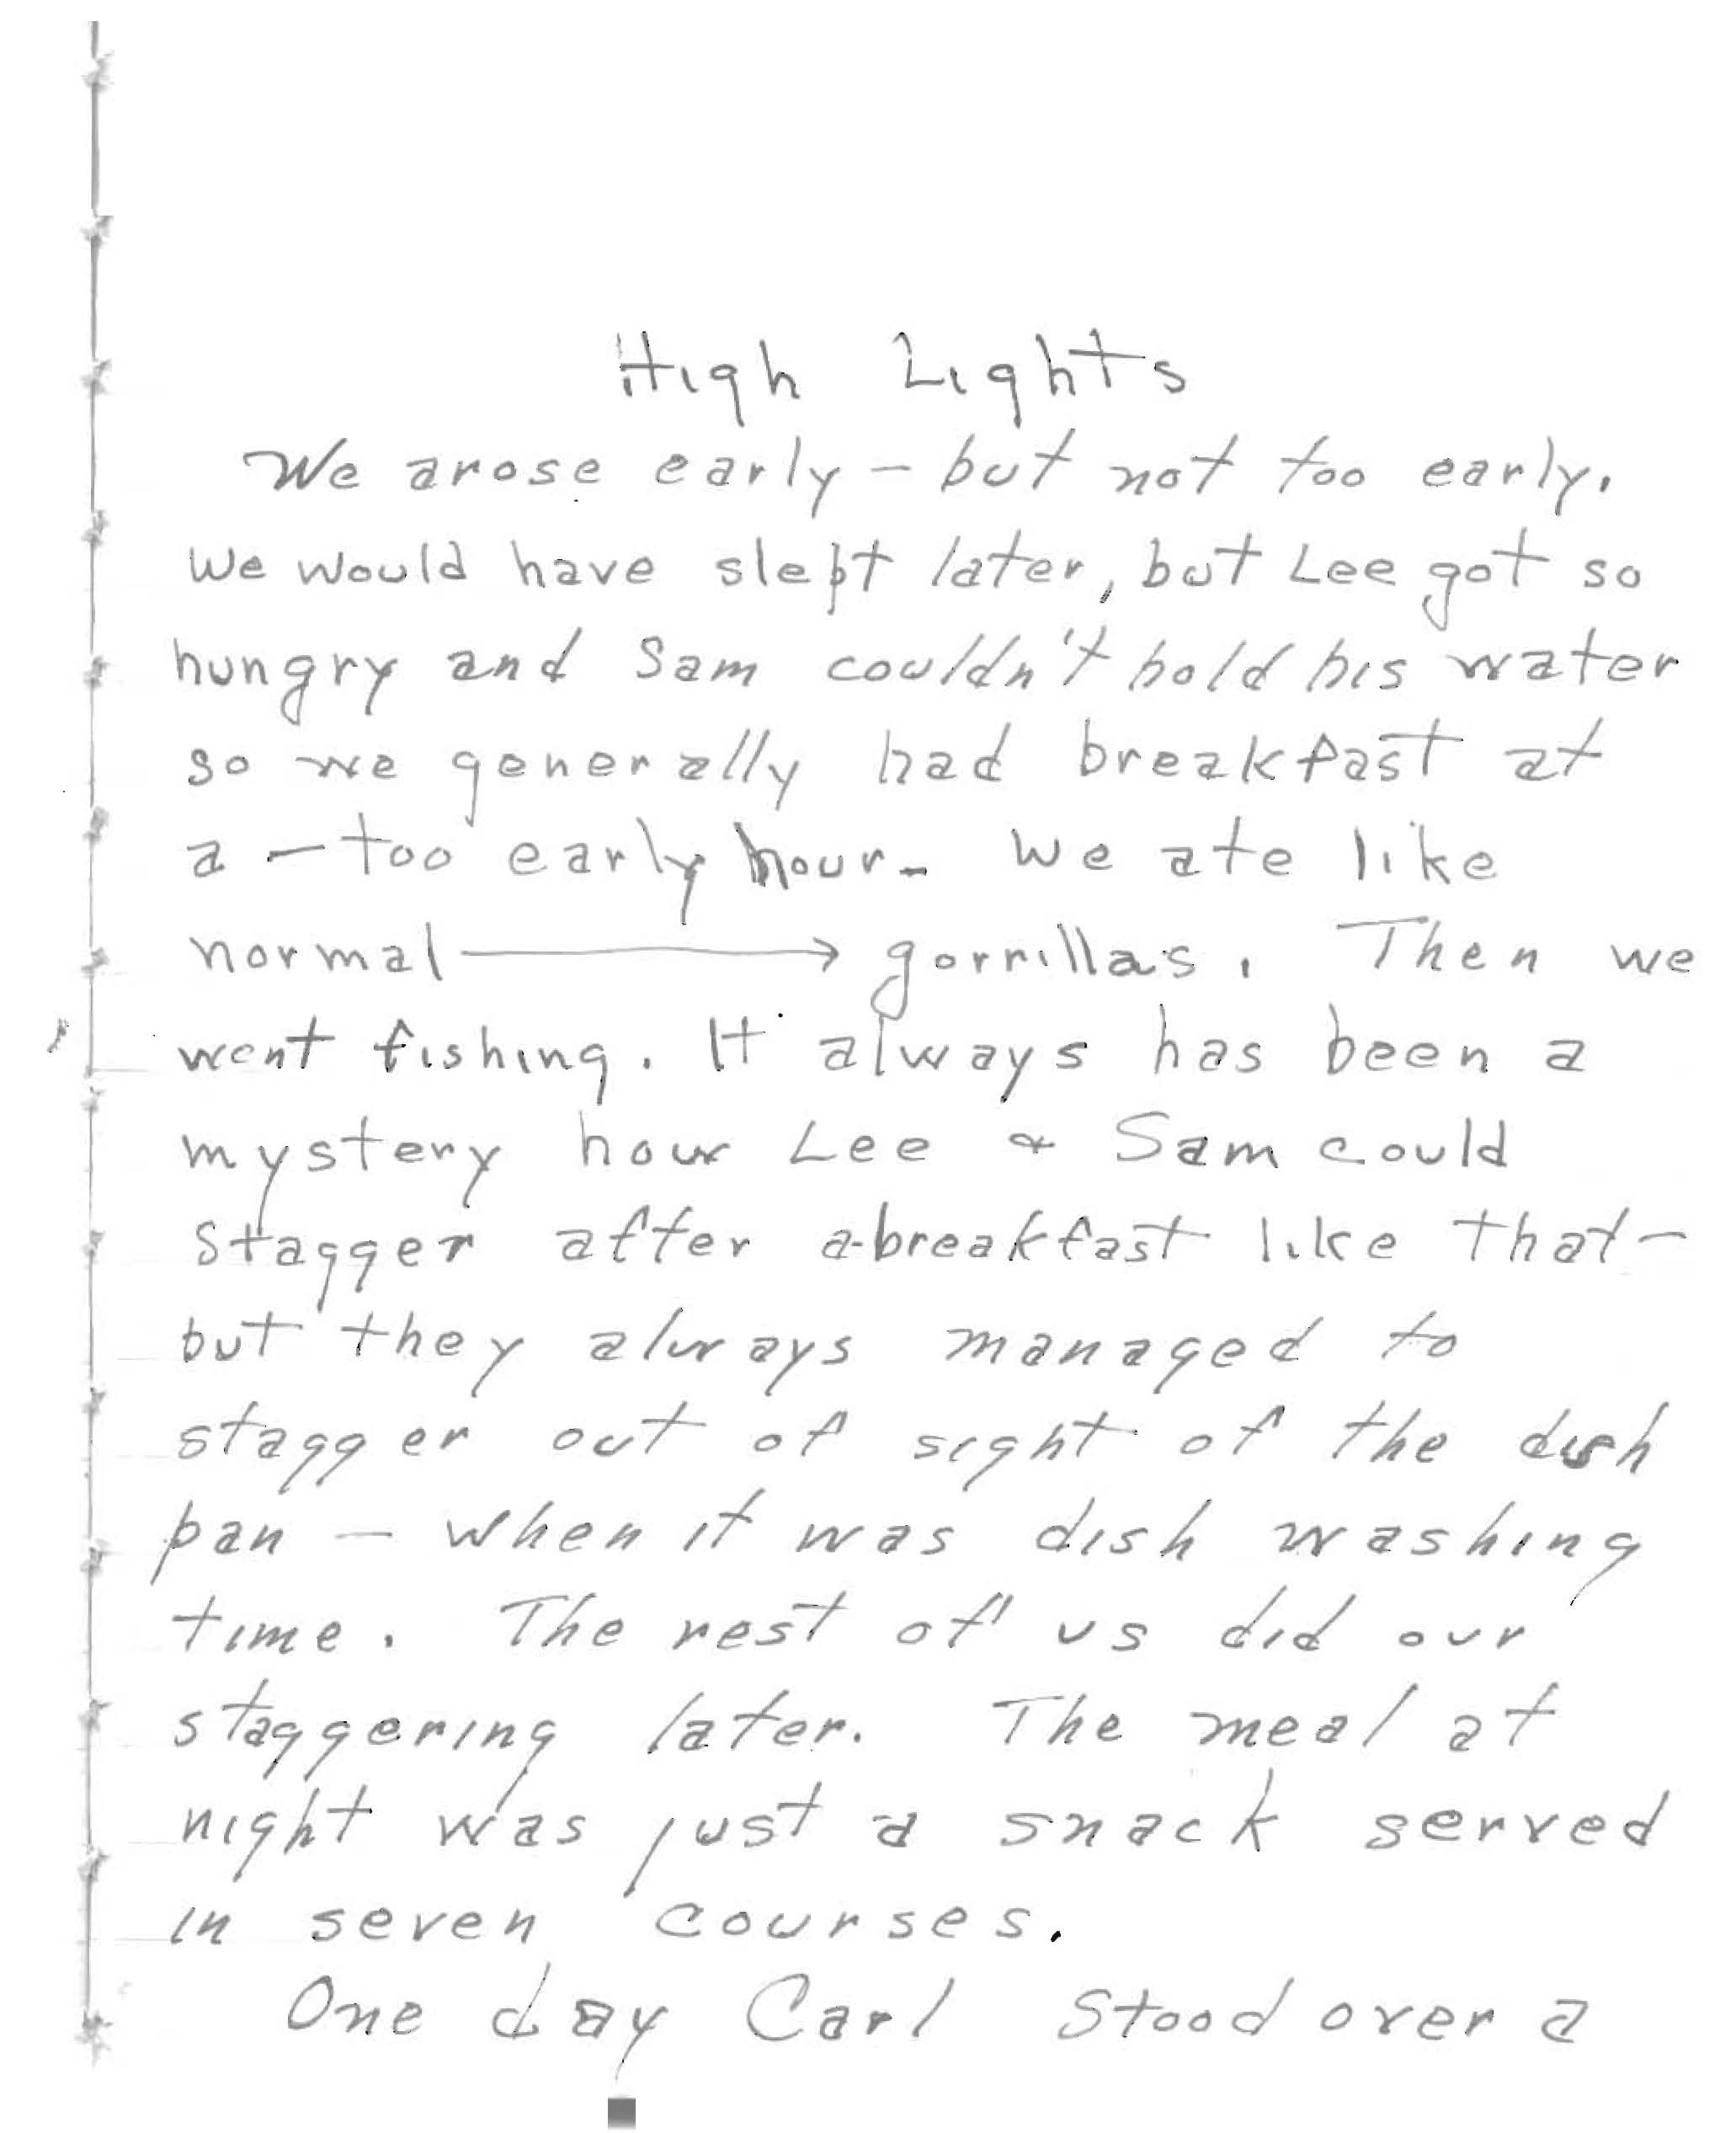 High Lights
We arose early – but not too early.
We would have slept later, but Lee got so
hungry and Sam couldn't hold his water
so we generally had breakfast at
a – too early hour – We ate like
normal ⟶ gorrillas. Then we
went fishing. It always has been a
mystery how Lee & Sam could
stagger after a breakfast like that –
but they always managed to
stagger out of sight of the dish
pan – when it was dish washing
time. The rest of us did our
staggering later. The meal at
night was just a snack served
in seven courses.
One day Carl stood over a